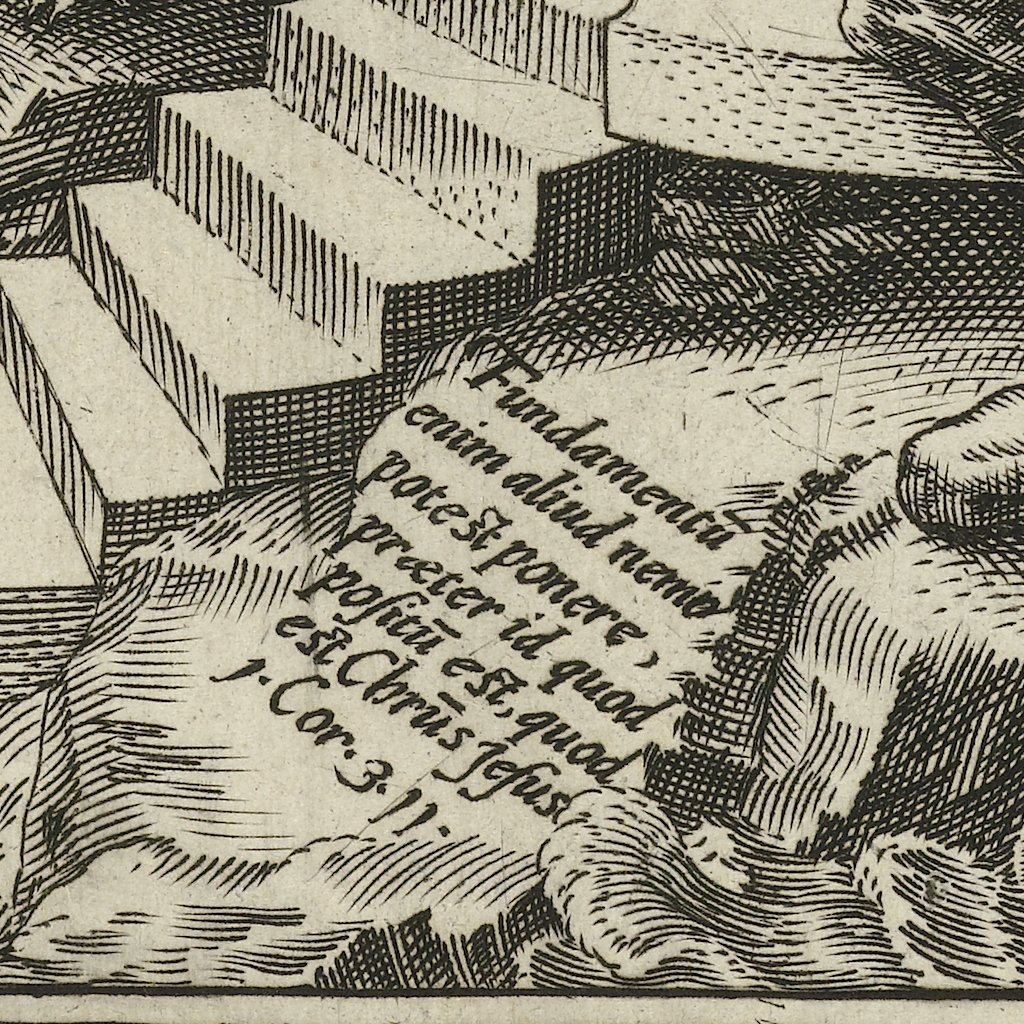 Fundamentū
enim aliud nemo
potest ponere,
præter id quod
poſitū est, quod
est Chrūs Jeſus
1. Cor. 3. 11.